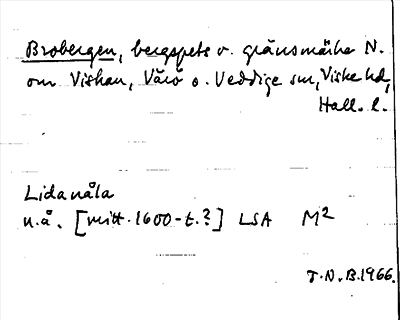 Brobergen, bergspets o. gränsmärke N.
om Viskan, Värö o. Veddige sn, Viske hd,
Hall. l.
Lidanåla
u.å. [mitt. 1600-t.?] LSA M2
T.N.B. 1966.